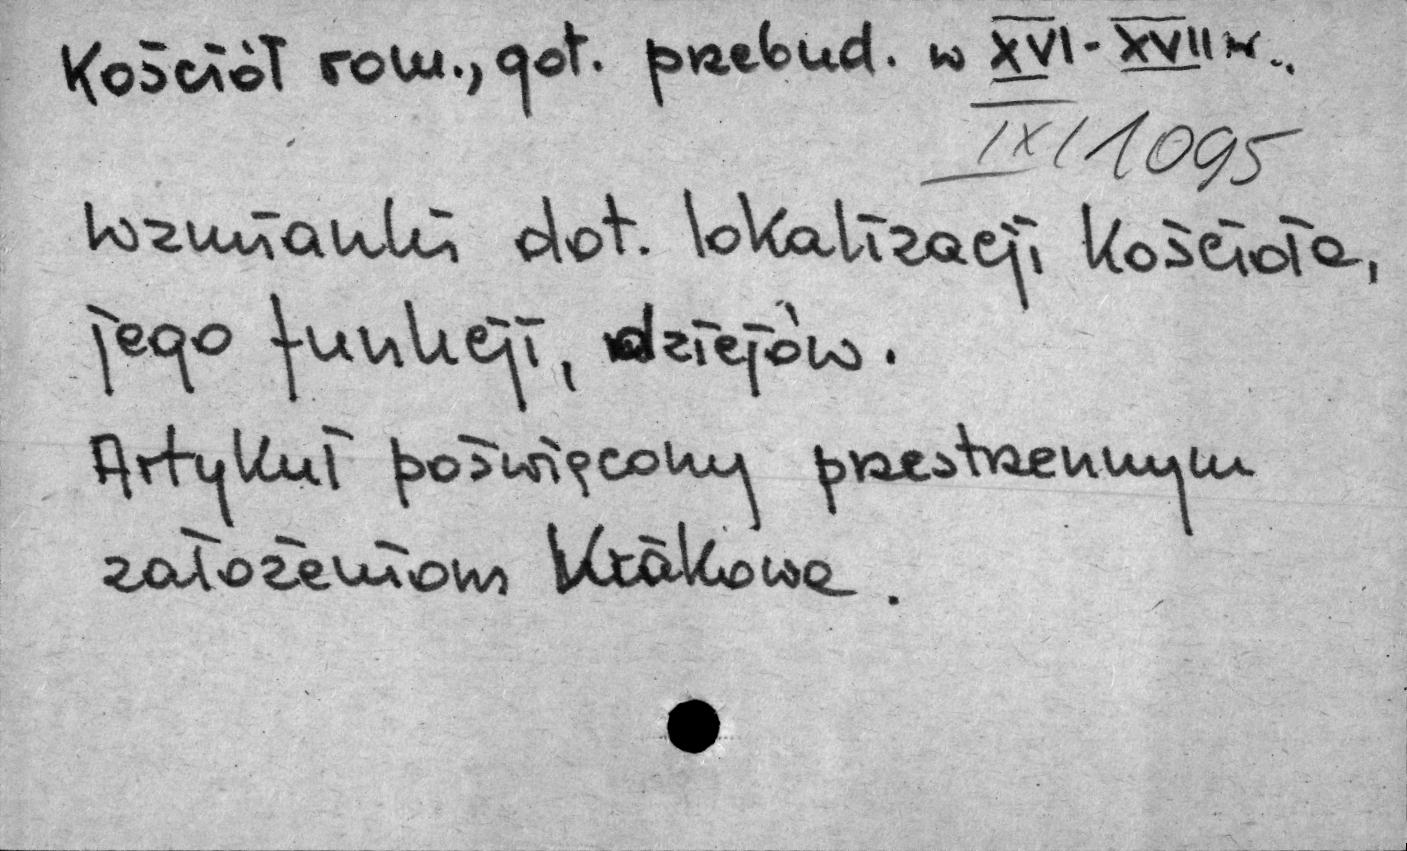 Kościół rom., got. przebud. w XVI-XVII w..
IX/1095
Wzmianki dot. lokalizacji kościoła,
jego funkcji, dziejów.
Artykuł poświęcony przestrzennym
założeniom Krakowa.